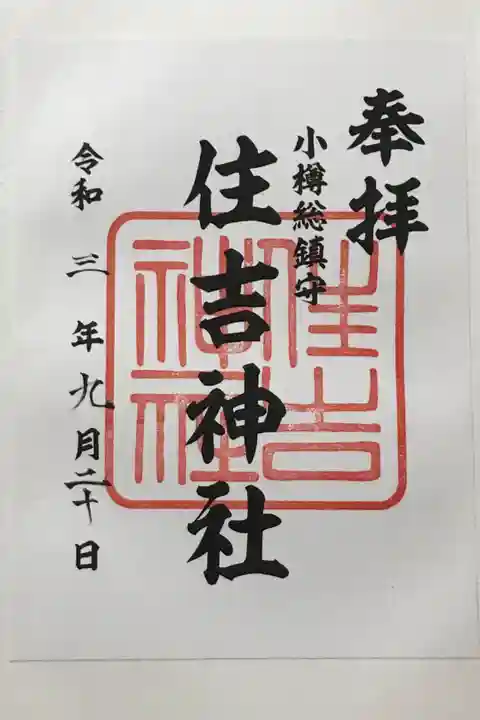 奉拝
小樽総鎮守
住吉神社
住吉神社
令和三年九月二十日